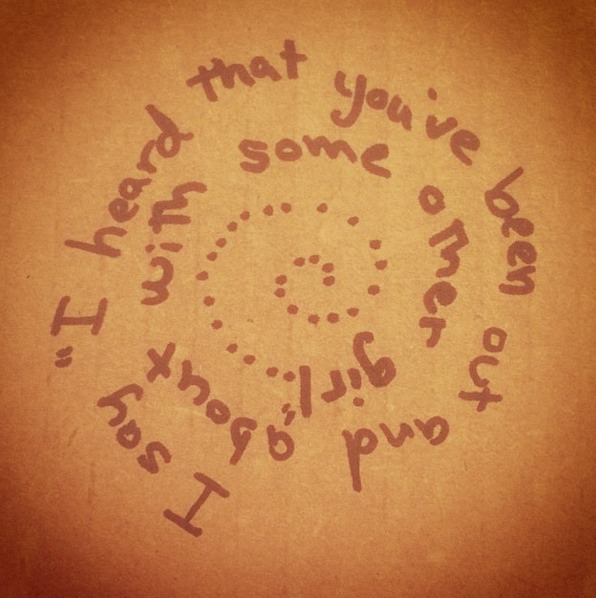 I say "I heard that you've been out and about with some other girl"